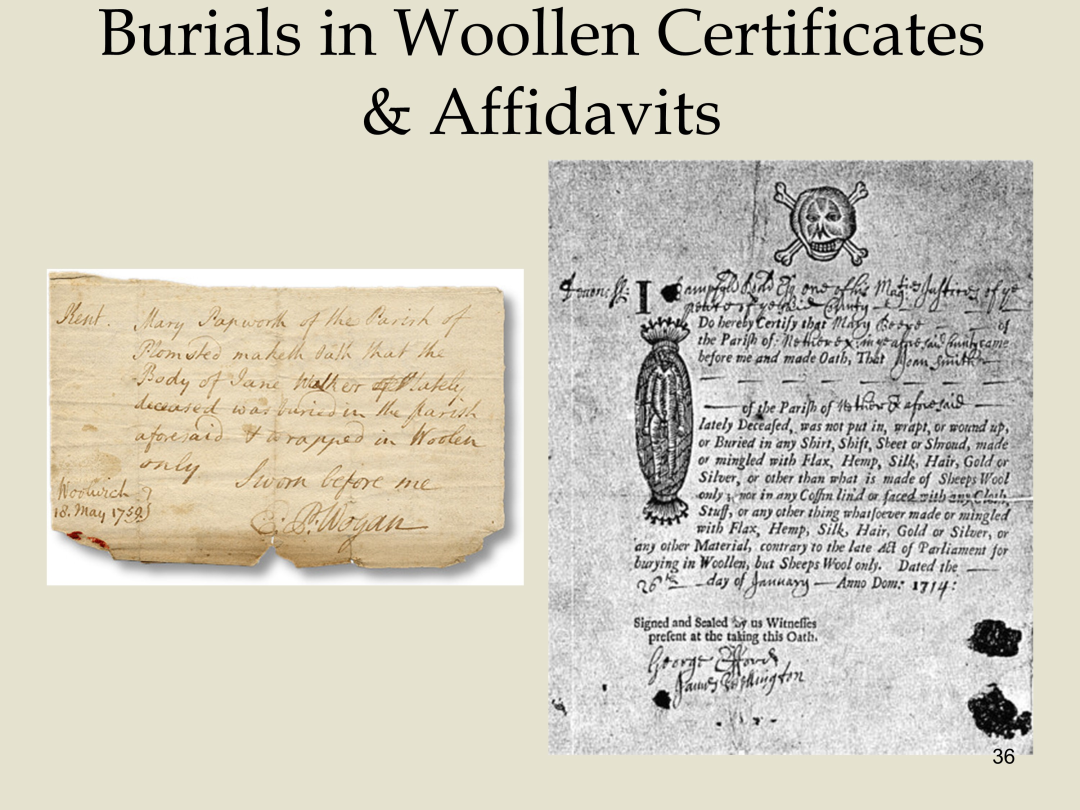 Burials in Woollen Certificates
& Affidavits
Kent. Mary Papworth of the Parish of
Plomsted maketh Oath that the
Body of Jane Walker of Plately
deceased was buried in the parish
aforesaid & wrapped in Woolen
only
Sworn before me
Woolwich
18. May 1759
P. Wogan
I Esq one of his Maj: Justices of ye
peace of ye said County
Do hereby Certify that Mary of
the Parish of Netherex in ye aforesaid County came
before me and made Oath, That Joan Smith
of the Parish of aforesaid
lately Deceased, was not put in, wrapt, or wound up,
or Buried in any Shirt, Shift, Sheet or Shroud, made
or mingled with Flax, Hemp, Silk, Hair, Gold or
Silver, or other than what is made of Sheeps Wool
only; nor in any Coffin lin'd or faced with any Cloth,
Stuff, or any other thing whatsoever made or mingled
with Flax, Hemp, Silk, Hair, Gold or Silver, or
any other Material, contrary to the late Act of Parliament for
burying in Woollen, but Sheeps Wool only. Dated the
26th day of January Anno Dom: 1714:
Signed and Sealed by us Witnesses
present at the taking this Oath.
George Efford
James
36